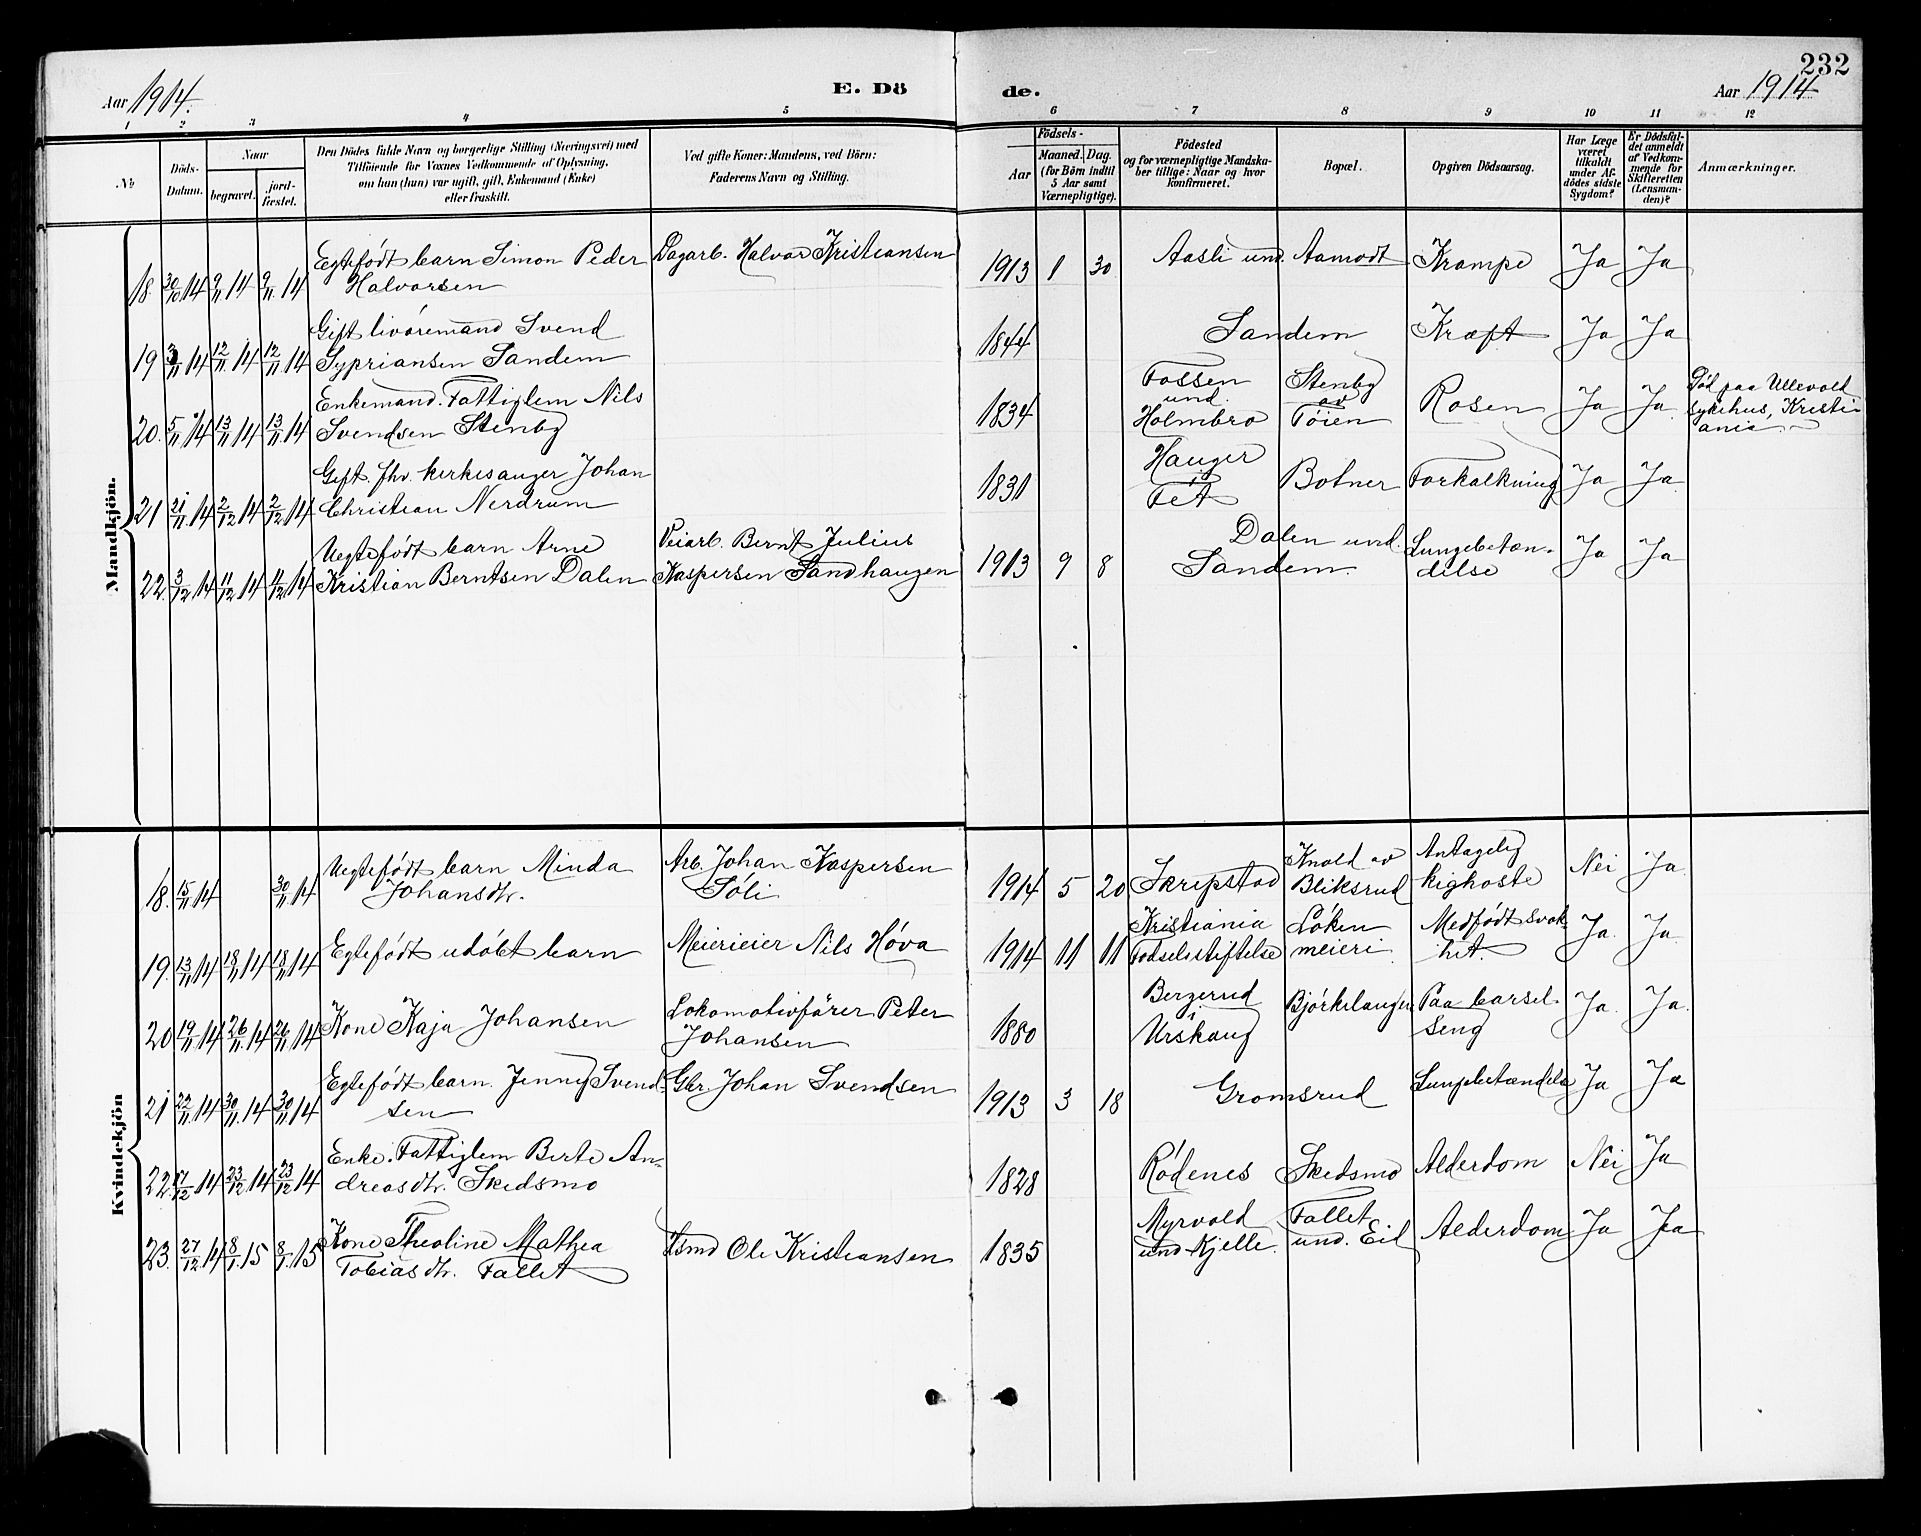 232
Aar 1914.
E. Dö
de.
Aar 1914
1 2 3 4 5 6 7 8 9 10 11 12
No
Döds-
Datum.
Naar
begravet.
jord-
fæstet.
Den Dödes fulde Navn og borgerlige Stilling (Næringsvei) med
Tilföiende for Voxnes Vedkommende af Oplysning,
om han (hun) var ugift, gift, Enkemand (Enke)
eller fraskilt.
Ved gifte Koner: Mandens, ved Börn:
Faderens Navn og Stilling.
Födsels-
Aar
Maaned. Dag.
(for Börn indtil
5 Aar samt
Værnepligtige).
Födested
og for værnepligtige Mandska-
ber tillige: Naar og hvor
konfirmeret.
Bopæl.
Opgiven Dödsaarsag.
Har Læge
været
tilkaldt
under Af-
dödes sidste
Sygdom?
Er Dödsfal-
det anmeldt
af Vedkom-
mende for
Skifteretten
(Lensman-
den)?
Anmærkninger.
Mandkjön.
Egtefødt barn Simon Peder Dagarb. Halvor Kristiansen Aasli und. Aamodt Krampe Ja Ja
18. 30/10 14 9/11 14 9/11 14 Halvorsen 1913 1 30
Gift livøremand Svend Sandem Kræft Ja Ja
19 3/11 14 12/11 14 12/11 14 Sypriansen Sandem 1844
Enkemand. Fattiglem Nils Fossen Stenby Rosen Ja Ja Død paa Ullevold
und. av sykehus, Kristi-
20. 5/11 14 13/11 14 13/11 14 Svendsen Stenby 1834 Holmbro Töien ania.
Gift fhv. kirkesanger Johan Hauger Botner Forkalkning Ja Ja
i
21 21/11 14 2/12 14 2/12 14 Christian Nerdrum 1831 Fet
Uegtefødt barn Arne Veiarb. Bernt Julius Dalen und. Lungebetæn- Ja Ja
22. 3/12 14 11/12 14 11/12 14 Kristian Berntsen Dalen Kaspersen Sandhaugen 1913 9 8 Sandem. delse
Kvindekjön
Uegtefødt barn Minda Arb. Johan Kaspersen Knold av Antagelig Nei Ja
18. 15/11 14 30/11 14 Johansdtr. Sóli 1914 5 20 Skripstad Bliksrud kighoste
Kristiania Löken Medfödt svak-
19. 13/11 14 18/11 14 18/11 14 Egtefødt udöbt barn Meierieier Nils Hóva 1914 11 11 Fødselsstiftelse meieri het. Ja Ja
Lokomotivfører Peter Bergerud Bjórkelangen Paa barsel- Ja Ja
i
20 19/11 14 26/11 14 26/11 14 Kone Kaja Johansen Johansen 1880 Urskaug seng
Egtefødt barn. Jenny Svend- Gbr. Johan Svendsen Gromsrud Lungebetændelse Ja Ja
21 22/11 14 30/11 14 30/11 14 sen 1913 3 18
Enke. Fattiglem Berte An- Rødenes Skedsmo Alderdom Nei Ja
22. 17/12 14 23/12 14 23/12 14 dreasdtr. Skedsmo 1828
Kone Theoline Mathea Hsmd Ole Kristiansen Myrvold Fallet Alderdom Ja Ja
23. 27/12 14 8/1 15 8/1 15 Tobiasdtr. Fallet 1835 und Kjelle. und. Eid